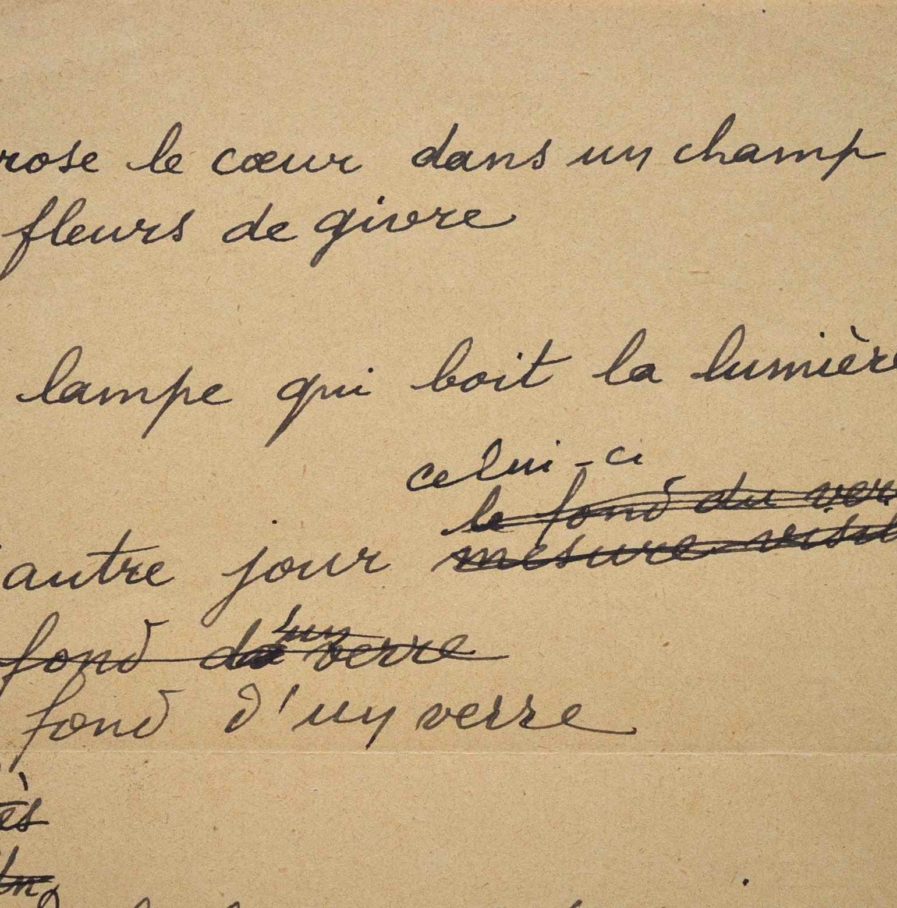 rose le cœur dans un champ
fleurs de givre
lampe qui boit la lumière
celui-ci
le fond du ver
autre jour mesure visib
fond d'un verre
fond d'un verre
ès